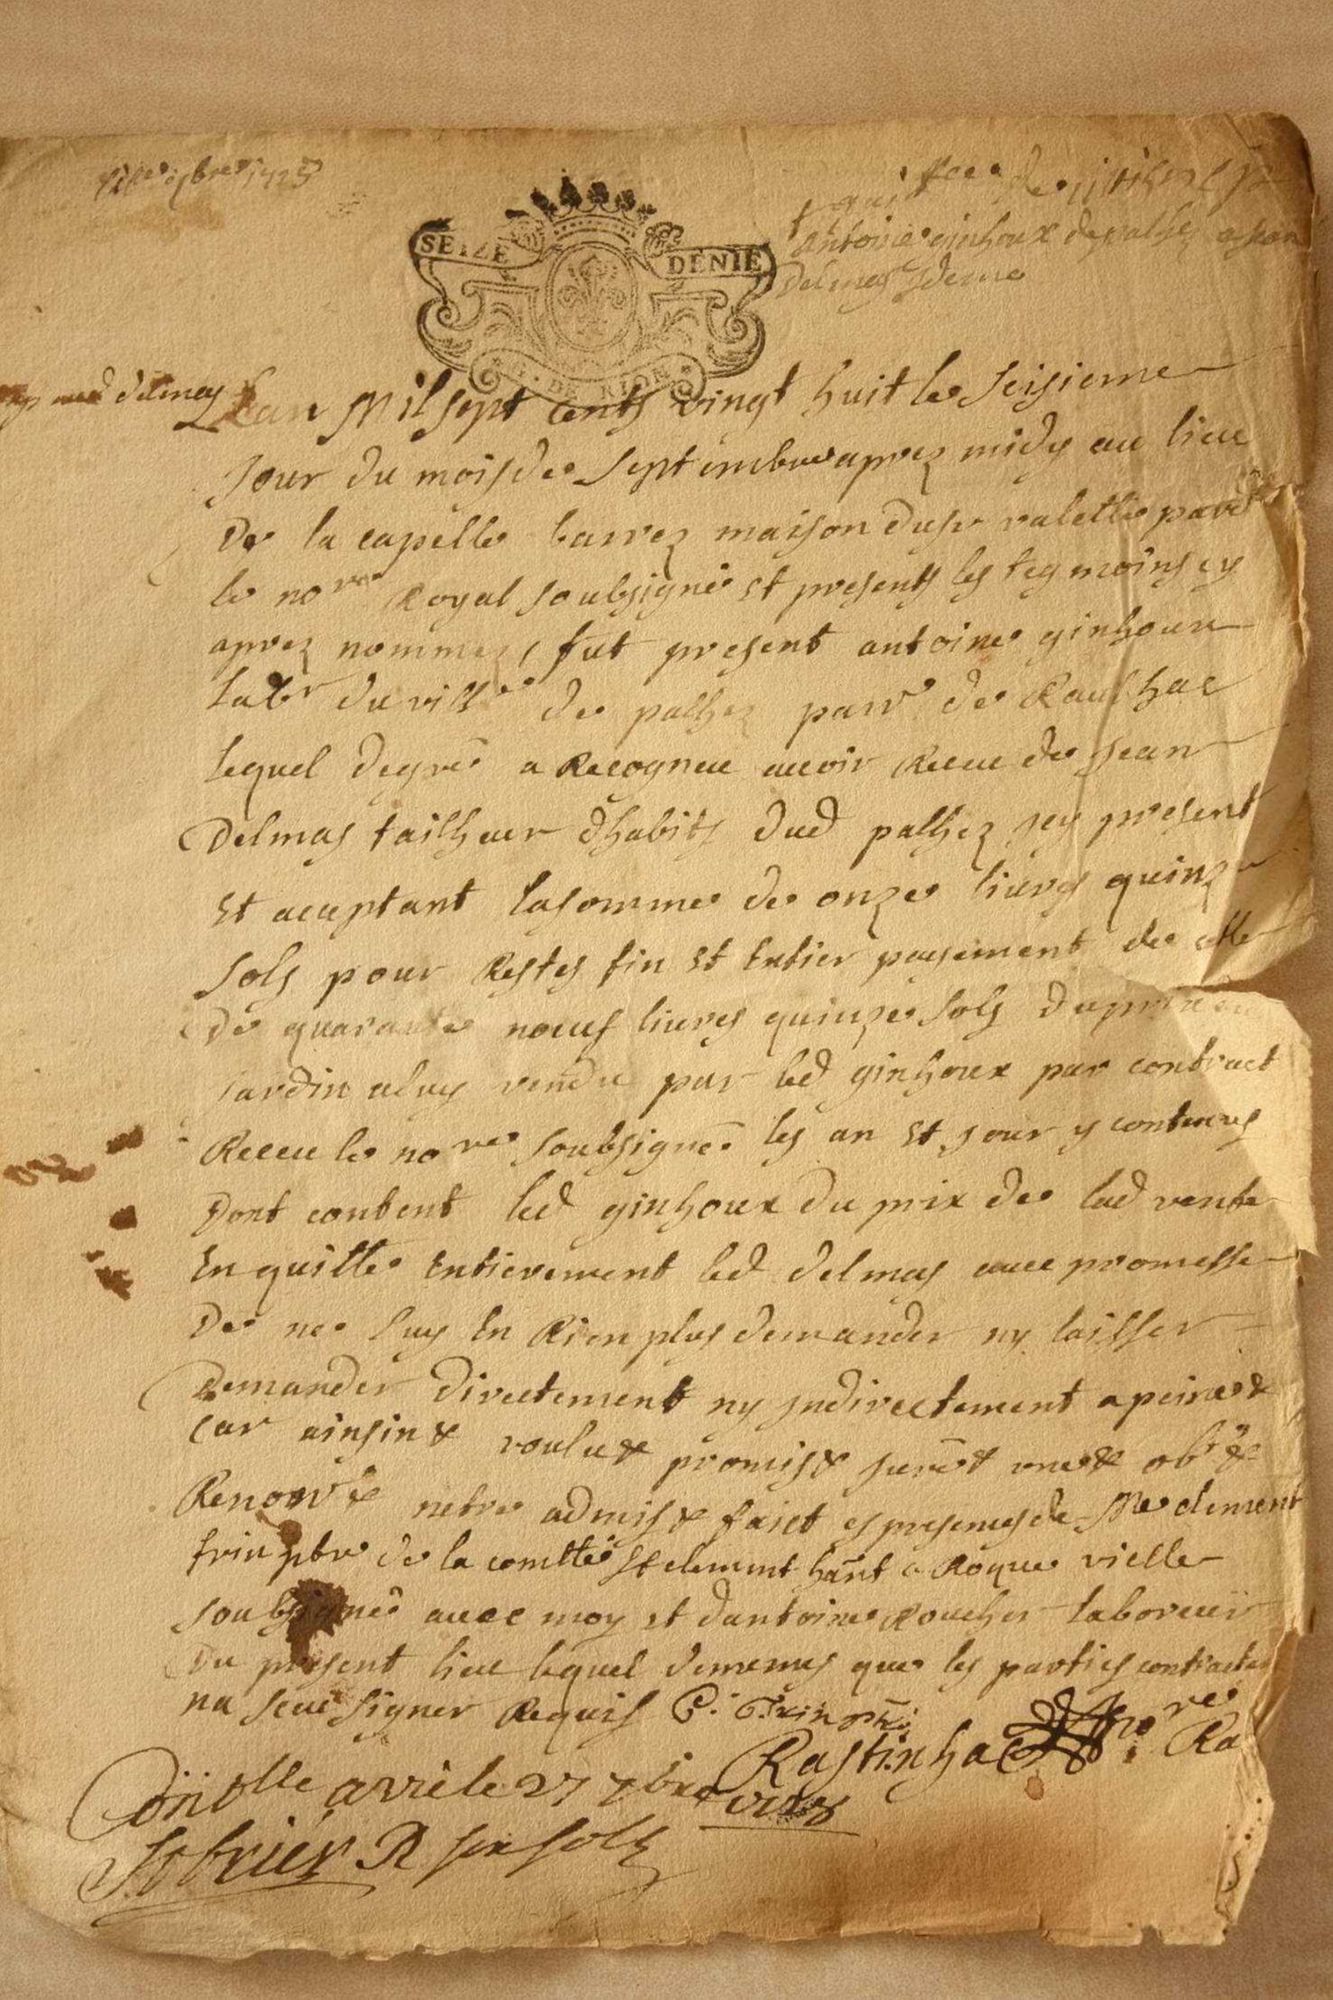 7bre 17
quittce de
Antoine ginhoux de palhez a jean
Delmas
SEIZE DENIE
G. DE RIOM
delmas
Lan Mil sept cents vingt huit le seisieme
Jour du mois de septembre aprez midy au lieu
De la capelle barrez maison du sr valette pardt
le nore Royal soubsigné et presents les tesmoins cy
aprez nommez, fut present antoine ginhoux
labr du villge de palhez parr de Raulhac
lequel degré a Recogneu avoir Receu de Jean
Delmas tailheur dhabits dud palhez icy present
Et aceptant la somme de onze livres quinze
sols pour Restes fin et Entier payement de celle
De quarante noeuf livres quinze sols du prix
jardin aluy vendu par led ginhoux par contract
Receu le nore soubsigné les an et jour y contenus
Dont content led ginhoux du prix de lad vente
En quitte Entierement led delmas avec promesse
De ne luy En Rien plus demander ny laisser
Demander directement ny Indirectement a peine &
Car ainsin & voulu & promis & juré & &  obr &
Renonr & netre admis & faict es presences de Me clement
frin pbre de la comtté St clement hant a Roque vielle
soubsigné avec moy et dantoine Roucher laboreur
Du present lieu lequel demmes que les parties contractan
na sceu signer Requis C. Frin
Rastinhac nore Ra
Con olle a vic le 27 7bre
R six sols